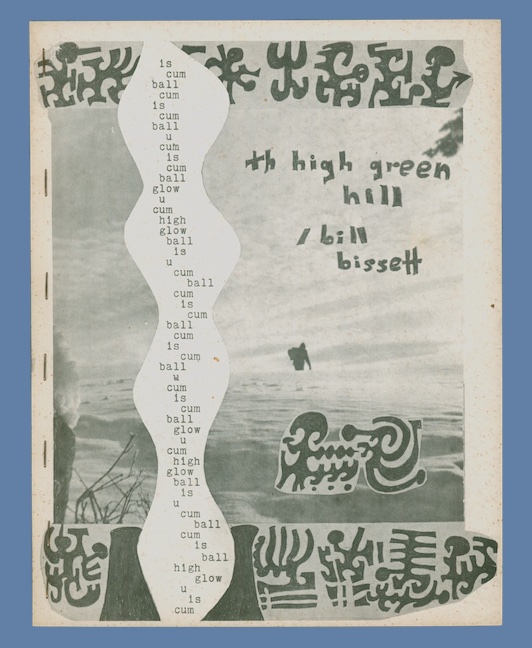 is
cum
ball
cum
is
cum
ball
u
cum
is
cum
ball
glow
u
cum
high
glow
ball
is
u
cum
ball
cum
is
cum
ball
cum
is
cum
ball
w
cum
is
cum
ball
glow
u
cum
high
glow
ball
is
u
cum
ball
cum
is
ball
high
glow
u
is
cum
th high green
hill
/ bill
bissett